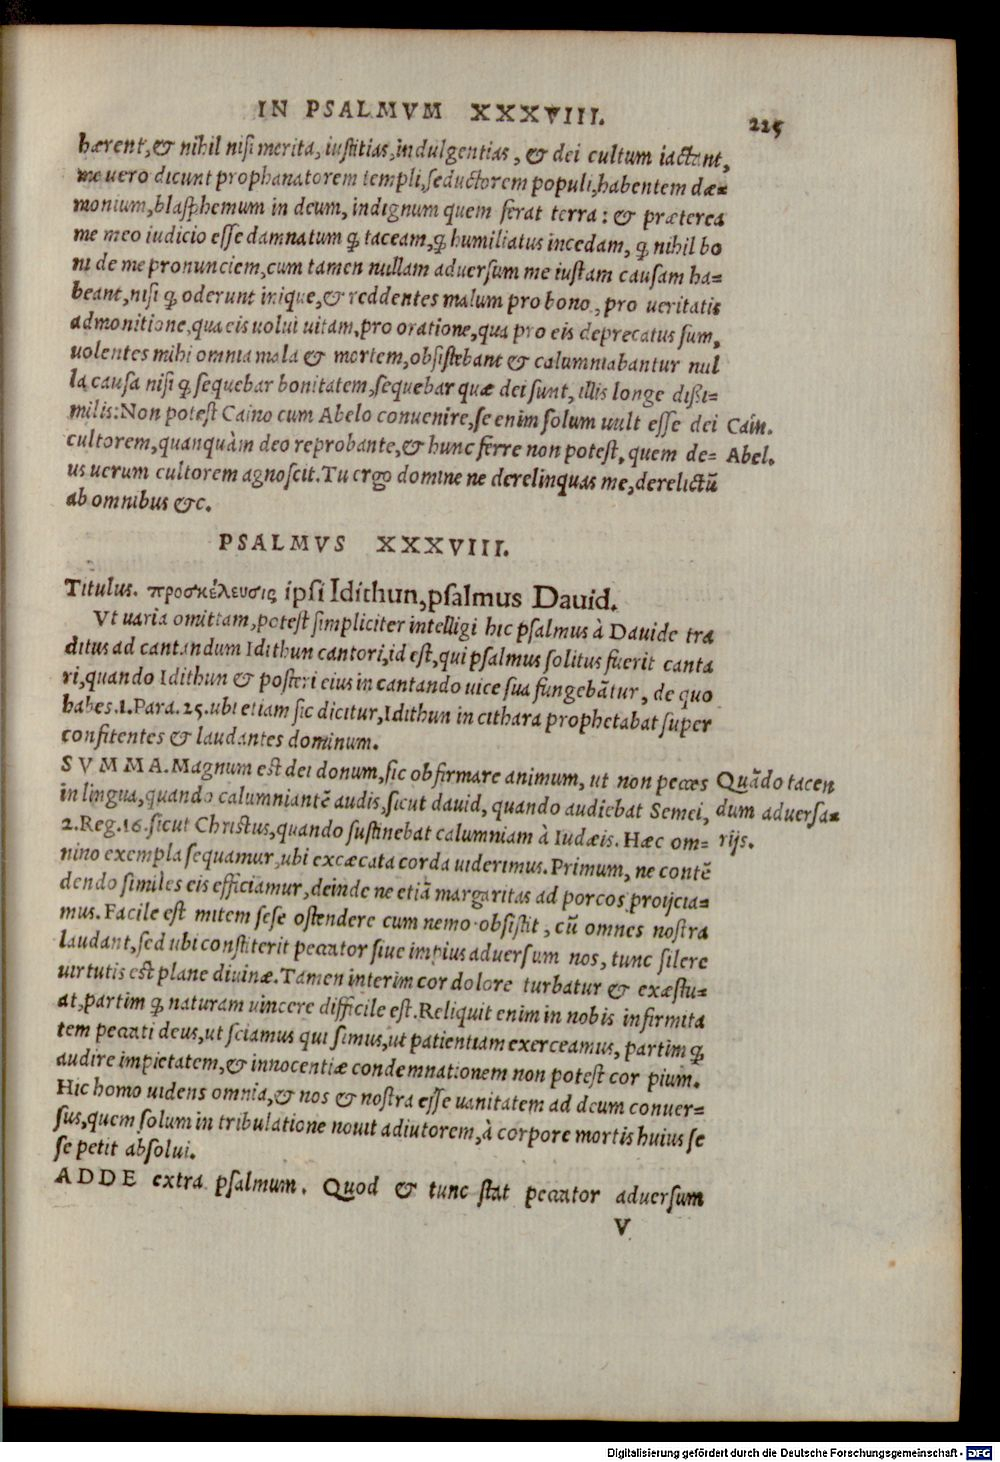 IN PSALMVM XXXVIII. 225
hærent,& nihil nisi merita, iustitias,indulgentias, & dei cultum iactant,
me uero dicunt prophanatorem templi,seductorem populi,habentem dæ=
monium,blasphemum in deum, indignum quem ferat terra: & præterea
me meo iudicio esse damnatum ꝙ taceam,ꝙ humiliatus incedam, ꝙ nihil bo
ni de me pronunciem,cum tamen nullam aduersum me iustam causam ha=
beant,nisi ꝙ oderunt inique,& reddentes malum pro bono, pro ueritatis
admonitione,qua eis uolui uitam,pro oratione,qua pro eis deprecatus sum,
uolentes mihi omnia mala & mortem,obsistebant & calumniabantur nul
la causa nisi ꝙ sequebar bonitatem,sequebar quæ dei sunt, illis longe dißi=
milis:Non potest Caino cum Abelo conuenire,se enim solum uult esse dei Cain.
cultorem,quanquàm deo reprobante,& hunc ferre non potest, quem de= Abel.
us uerum cultorem agnoscit.Tu ergo domine ne derelinquas me,derelictũ
ab omnibus &c.
PSALMVS XXXVIII.
Titulus. προσκέλευσις ipsi Idithun,psalmus Dauid.
Vt uaria omittam,potest simpliciter intelligi hic psalmus à Dauide tra
ditus ad cantandum Idithun cantori,id est,qui psalmus solitus fuerit canta
ri,quando Idithun & posteri eius in cantando uice sua fungebãtur, de quo
habes.1.Para.25.ubi etiam sic dicitur,Idithun in cithara prophetabat super
confitentes & laudantes dominum.
SVMMA.Magnum est dei donum,sic obfirmare animum, ut non pecces Quãdo tacen
in lingua,quando calumniantẽ audis,sicut dauid, quando audiebat Semei, dum aduersa=
2.Reg.16.sicut Christus,quando sustinebat calumniam à Iudæis. Hæc om= rijs.
nino exempla sequamur,ubi excæcata corda uiderimus.Primum, ne contẽ
dendo similes eis efficiamur,deinde ne etiã margaritas ad porcos proijcia=
mus.Facile est mitem sese ostendere cum nemo obsistit, cũ omnes nostra
laudant,sed ubi constiterit peccator siue impius aduersum nos, tunc silere
uirtutis est plane diuinæ.Tamen interim cor dolore turbatur & exæstu=
at,partim ꝙ naturam uincere difficile est.Reliquit enim in nobis infirmita
tem peccati deus,ut sciamus qui simus,ut patientiam exerceamus, partim ꝙ
audire impietatem,& innocentiæ condemnationem non potest cor pium.
Hic homo uidens omnia,& nos & nostra esse uanitatem ad deum conuer=
sus,quem solum in tribulatione nouit adiutorem,à corpore mortis huius se
se petit absolui.
ADDE extra psalmum. Quod & tunc stat peccator aduersum
V
Digitalisierung gefördert durch die Deutsche Forschungsgemeinschaft - DFG